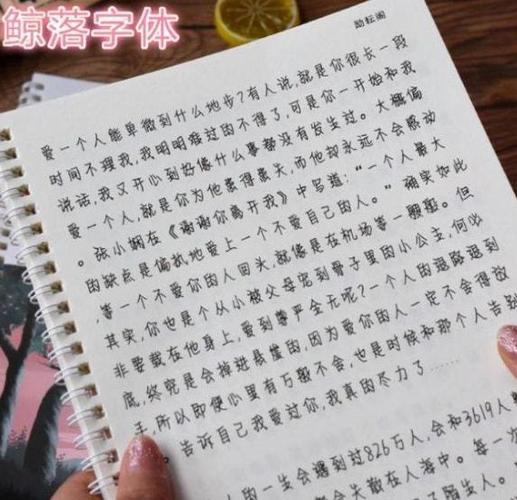 鲸落字体
励耘阁
爱一个人能卑微到什么地步?有人说,就是你很长一段
时间不理我,我明明难过的不得了,可是你一开始和我
说话,我又开心到好像什么事都没有发生过。大概偏
爱一个人,就是你为他患得患失,而他却永远不会感动
。张小娴在《谢谢你离开我》中写道:“一个人最大
的缺点是偏执地爱上一个不爱自己的人。”确实如此
,等一个不爱你的人回头,就像是在机场等一艘船。但
其实,你也是个从小被父母宠到骨子里的小公主,何必
非要栽在他身上,爱到尊严全无呢?一个人的退路退到
底,终究是会掉进悬崖的,因为爱你的人一定不会得
手,所以即便心里有万般不舍,也是时候和那个人告别
。告诉自己我爱过你,我真的尽力了……
人的一生会遇到过826万人,会和3619人
会失散在人海中。每一次
陌生人。